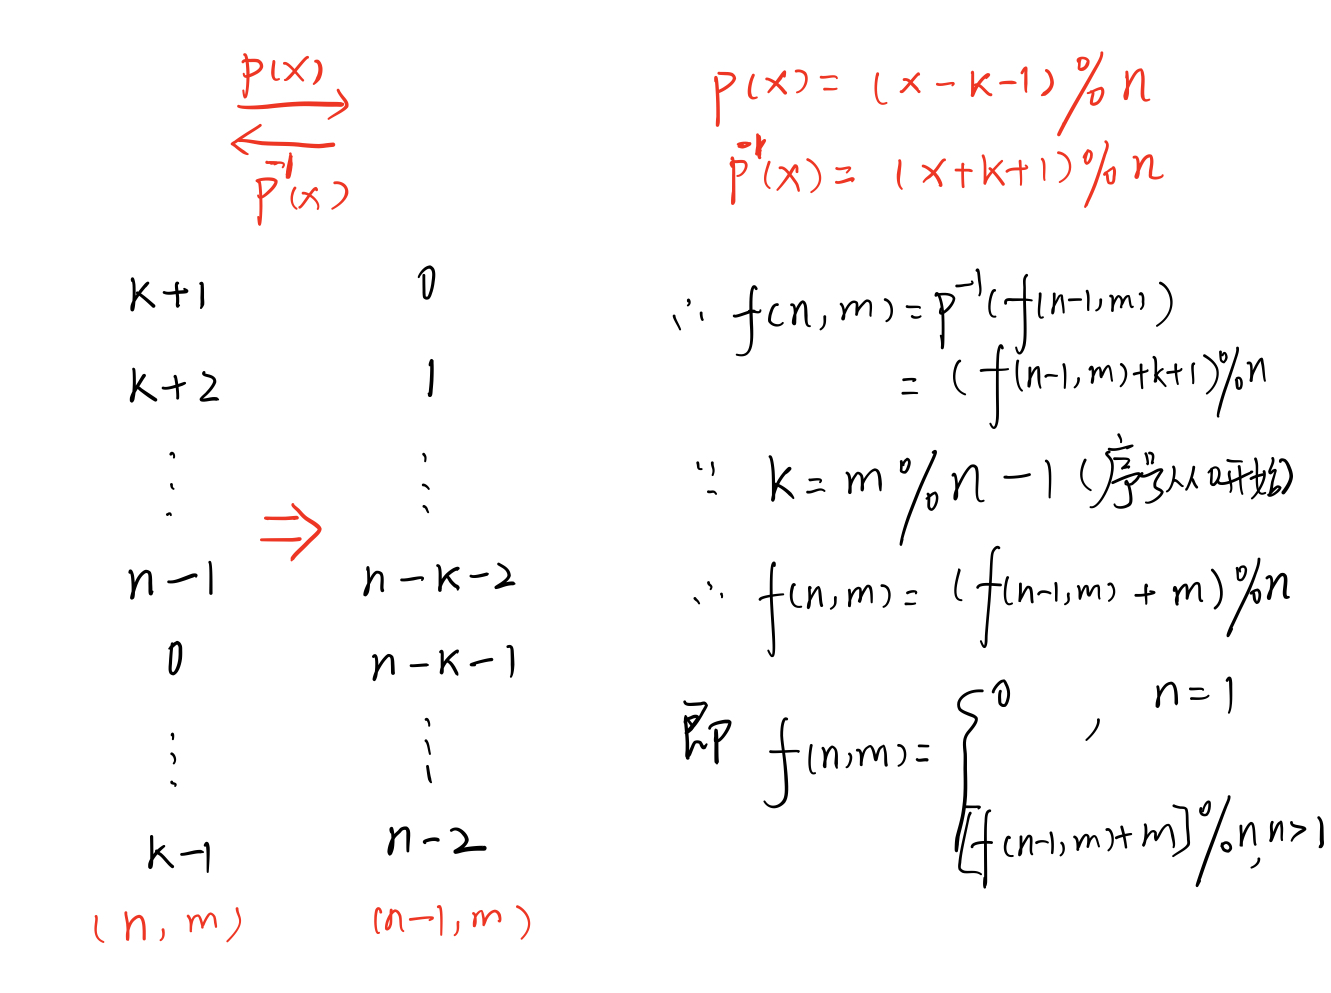 p(x)
p⁻¹(x)
k+1 0
k+2 1
⋮ ⋮
n-1 ⇒ n-k-2
0 n-k-1
⋮ ⋮
k-1 n-2
(n, m) (n-1, m)
p(x) = (x-k-1)%n
p⁻¹(x) = (x+k+1)%n
∴ f(n, m) = p⁻¹(f(n-1, m))
= (f(n-1, m)+k+1)%n
∵ k = m%n-1 (序号从0开始)
∴ f(n, m) = (f(n-1, m) + m)%n
即 f(n, m) = { 0 , n=1
[f(n-1, m)+m]%n, n>1